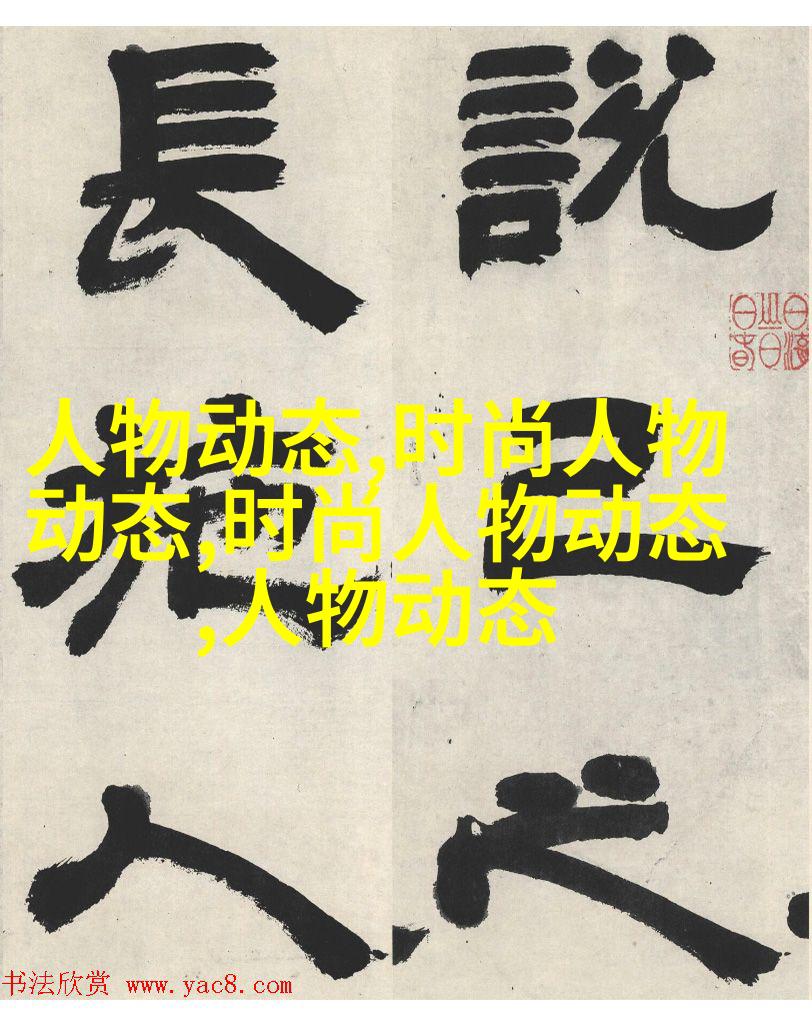 説己之
長施人
人物动态,时尚人物
动态,时尚人物动态
,人物动态
书法欣赏 www.yac8.com